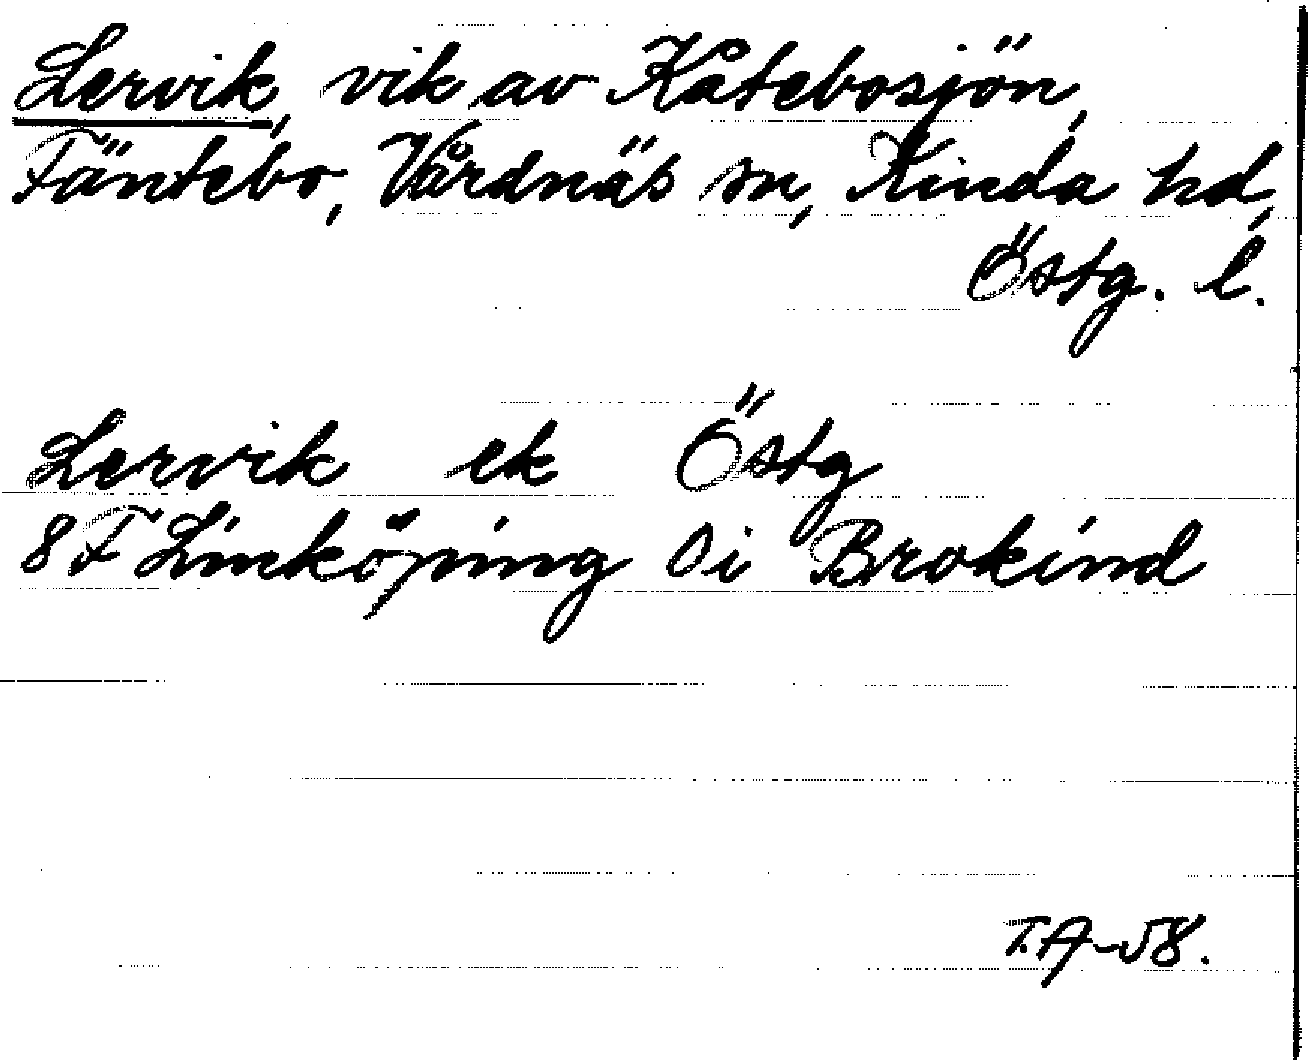 Lervik, vik av Kåtebosjön,
Fäntebo, Vårdnäs sn, Kinda hd,
Östg. l.
Lervik ek Östg
8F Linköping Öi Brokind
T.A-58.